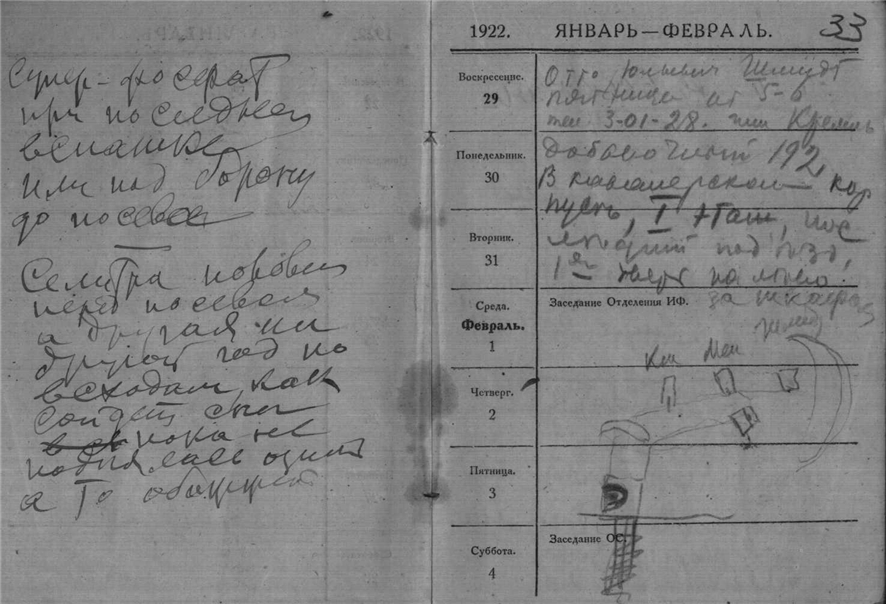 Супер-фосфат
при последней
вспашке
или под борону
до посева
Селитра половин
перед посевом
а другая на
другой год по
всходам, как
сойдет снег
пока не
поднялась озимь
а то
1922. ЯНВАРЬ—ФЕВРАЛЬ. 33
Воскресение.
29
Отто Юльевич Шмидт
пятница от 5-6
тел 3-01-28. или Кремль
Понедельник.
30
добавочный 192,
В кавалерском кор
пусе, I этаж, пос
Вторник.
31
ледний подъезд,
1ая дверь налево!
за шкафом
Среда.
Февраль.
1
Заседание Отделения ИФ.
Четверг.
2
Пятница.
3
Суббота.
4
Заседание ОС.